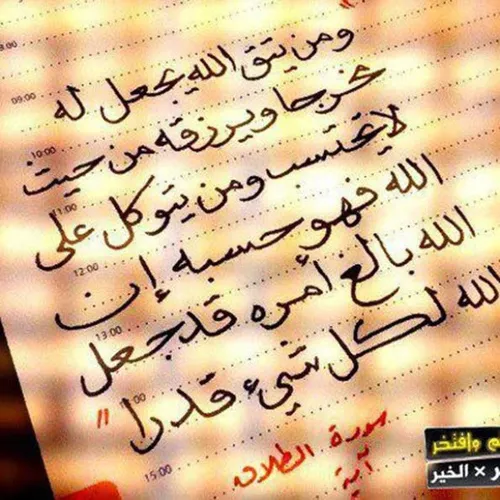 "
ومن يتق الله يجعل له
مخرجا ويرزقه من حيث
لا يحتسب ومن يتوكل على
الله فهو حسبه إن
الله بالغ أمره قد جعل
الله لكل شيء قدرا "
سورة الطلاق
آية
08:00
09:00
10:00
11:00
12:00
13:00
:00
15:00
م وافتخر
ر × الخير